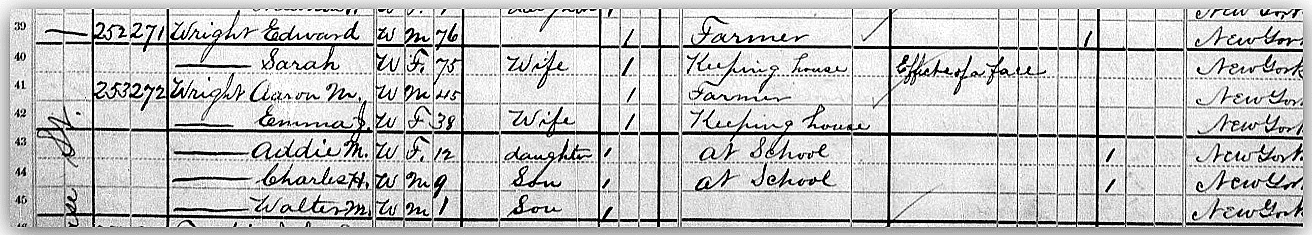 39 — 252 271 Wright Edward W M 76 1 Farmer 1 New York
40 — Sarah W F. 75 Wife 1 Keeping house Effects of a fall New York
41 253 272 Wright Aaron M. W M 45 1 Farmer New York
42 — Emma J. W F 38 Wife 1 Keeping house New York
43 — Addie M. W F. 12 daughter 1 at School 1 New York
44 — Charles H. W M 9 Son 1 at School 1 New York
45 — Walter M. W M 1 Son 1 New York
St.